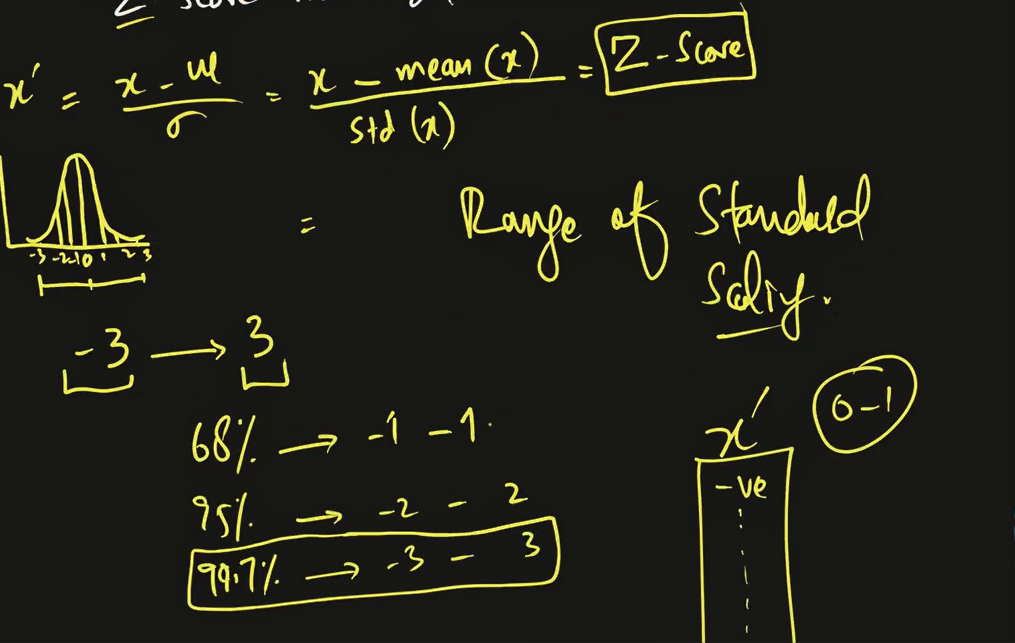 Z-score
x' = x - μ / σ = x - mean (x) / std (x) = Z-Score
-3 -2 -1 0 1 2 3
= Range of Standard
Scaling.
-3 → 3
0-1
68% → -1 - 1.
x'
-ve
95% → -2 - 2
99.7% → -3 - 3